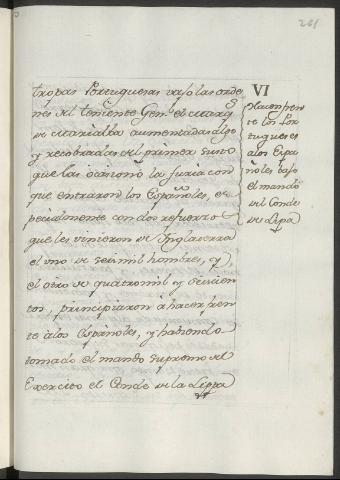 261
tropas Portuguesas vajo las orde
nes del teniente Gen.l el Marq.s
de Marialba aumentadas algo
y recobradas del primer susto
que las ocasionó la furia con
que entraron los Españoles, es
pecialmente con dos refuerzos
que les vinieron de Inglaterra
el uno de seis mil hombres, y
el otro de quatro mil y decien
tos, principiaron á hacer fren
te á los Españoles, y habiendo
tomado el mando supremo del
Exercito el Conde de la Lippa
VI
Hacen fren
te los Por
tugueses
a los Espa
ñoles bajo
el mando
del Conde
de Lipa